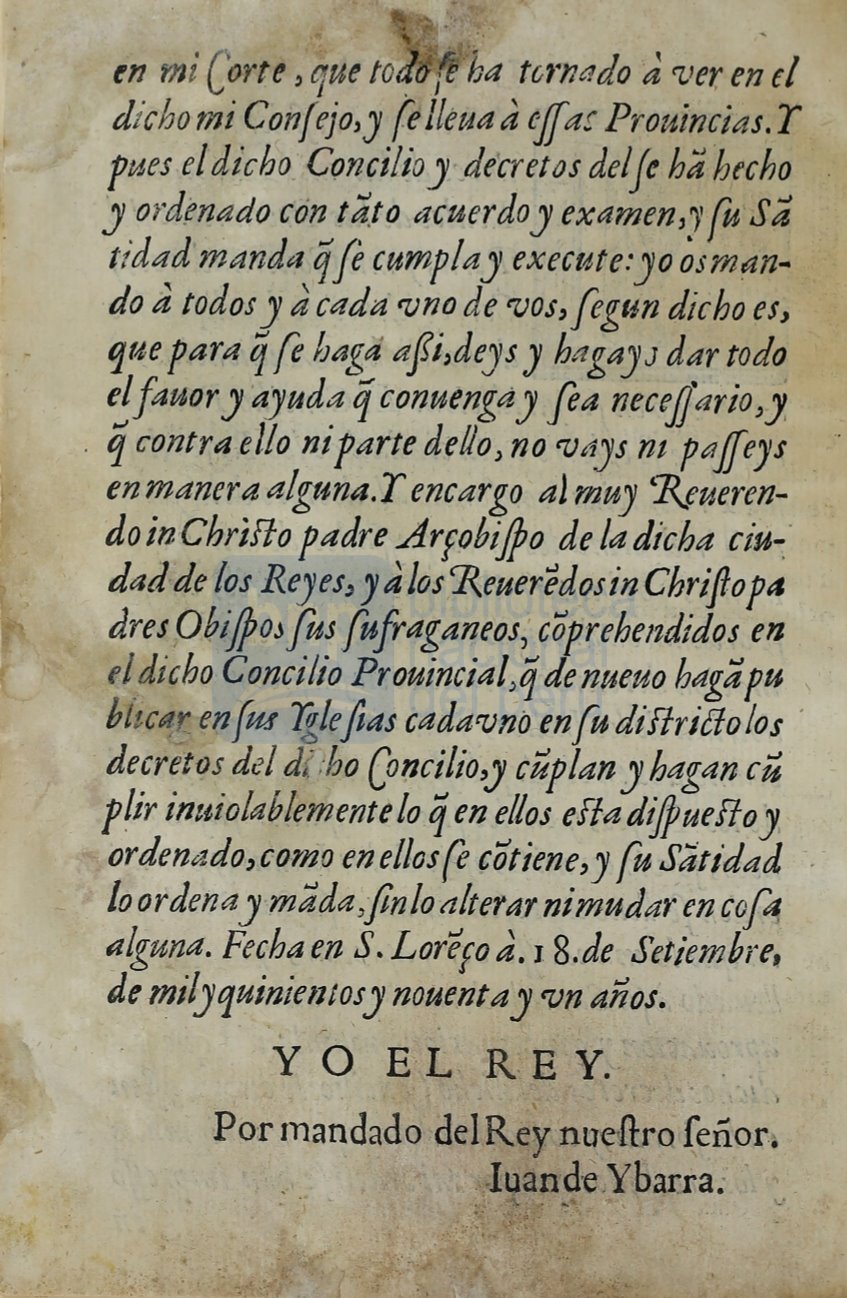 en mi Corte, que todo ſe ha tornado à ver en el
dicho mi Conſejo, y ſe lleua à eſſas Prouincias. Y
pues el dicho Concilio y decretos del ſe hã hecho
y ordenado con tãto acuerdo y examen, y ſu Sã
tidad manda q̃ ſe cumpla y execute: yo os man-
do à todos y à cada vno de vos, ſegun dicho es,
que para q̃ ſe haga aßi, deys y hagays dar todo
el fauor y ayuda q̃ conuenga y ſea neceſſario, y
q̃ contra ello ni parte dello, no vays ni paſſeys
en manera alguna. Y encargo al muy Reueren-
do in Chriſto padre Arçobiſpo de la dicha ciu-
dad de los Reyes, y à los Reuerẽdos in Chriſto pa
dres Obiſpos ſus ſufraganeos, cõprehendidos en
el dicho Concilio Prouincial, q̃ de nueuo hagã pu
blicar en ſus Ygleſias cada vno en ſu diſtricto los
decretos del dicho Concilio, y cũplan y hagan cũ
plir inuiolablemente lo q̃ en ellos eſta diſpueſto y
ordenado, como en ellos ſe cõtiene, y ſu Sãtidad
lo ordena y mãda, ſin lo alterar ni mudar en coſa
alguna. Fecha en S. Lorẽço à. 18. de Setiembre,
de mil y quinientos y nouenta y vn años.
YO EL REY.
Por mandado del Rey nueſtro ſeñor.
Iuan de Ybarra.